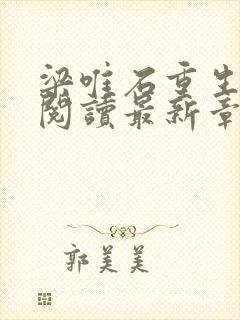 梁唯石重生
閱讀最新章
郭美美